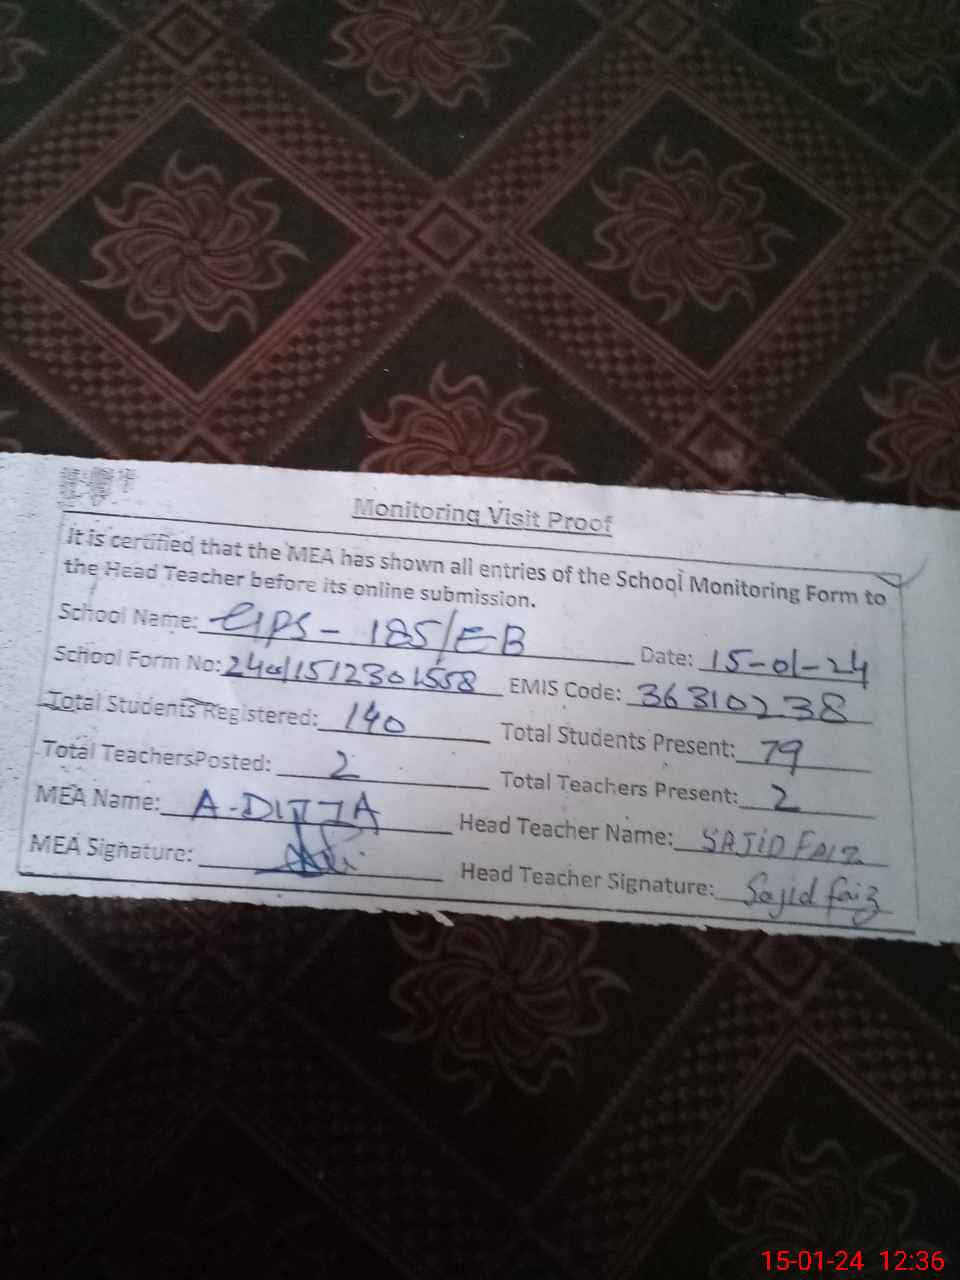 Monitoring Visit Proof
It is certified that the MEA has shown all entries of the School Monitoring Form to
the Head Teacher before its online submission.
School Name: GPS - 185/EB Date: 15-01-24
School Form No: 1512301558 EMIS Code: 36310238
Total Students Registered: 140 Total Students Present: 79
Total TeachersPosted: 2 Total Teachers Present: 2
MEA Name: A-DITTA Head Teacher Name: SAJID FAIZ
MEA Signature: Head Teacher Signature: Sajid faiz
15-01-24 12:36